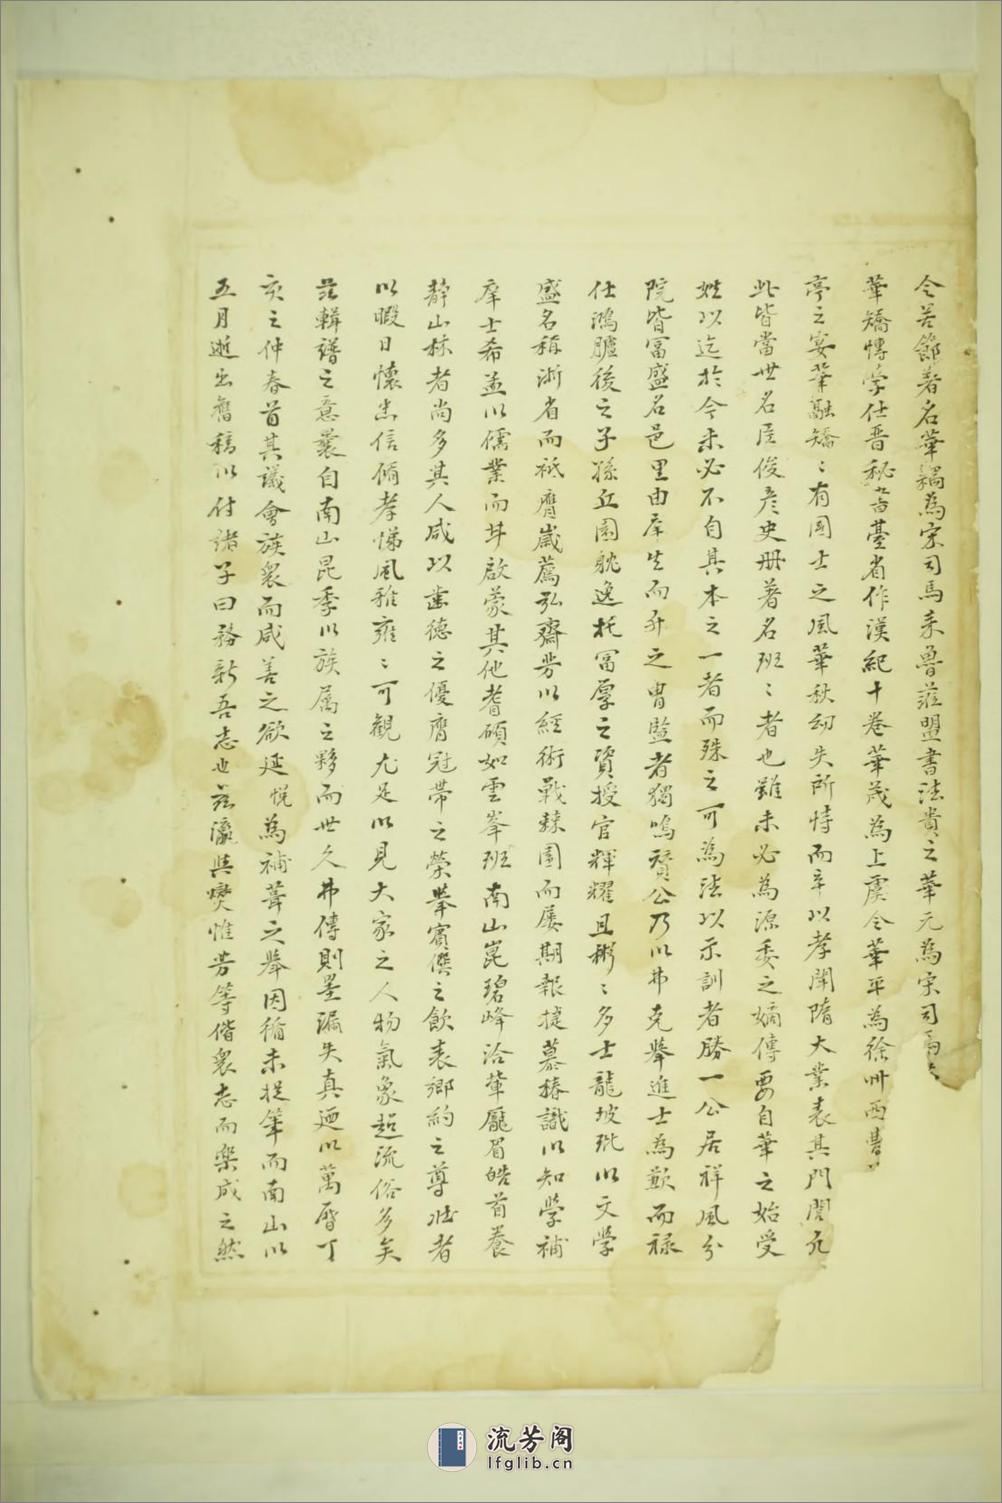 令若節著名華耦為宋司馬来魯莅盟書法貴之華元為宋司馬
華嶠博學仕晋秘書臺省作漢紀十卷華茂為上虞令華平為徐州西曹
亭之宴華融矯〻有國士之風華秋幼失所恃而卒以孝聞隋大業表其門閭凢
此皆當世名臣俊彦史册著名班〻者也雖未必為源委之嫡傳要自華之始受
姓以迄於今未必不自其本之一者而殊之可為法以示訓者勝一公居祥風分
院皆冨盛名邑里由庠生而升之胄監者獨鳴賓公乃以弗克舉進士為歉而禄
仕鴻臚後之子孫丘園躭逸托冨厚之資授官輝耀且彬〻多士龍坡玭以文學
盛名稱浙省而祗膺嵗薦弘齋芳以經術戰棘圍而屢期報捷慕椿識以知學補
庠士希孟以儒業而啟蒙其他耆碩如雲峯班南山崑碧峰洽軰龎眉皓首養
静山林者尚多其人咸以齒德之優膺冠带之榮舉賓僎之飲表鄉約之尊壯者
以暇日懷忠信脩孝悌風雅雍〻可觀尤足以見大家之人物氣象超流俗多矣
茲輯譜之意曩自南山昆季以族属之夥而世久弗傳則墨漏失真廼以萬曆丁
亥之仲春首其議會族衆而咸善之欲延悦為補葺之舉因循未捉筆而南山以
五月逝出舊稿以付諸子曰務新吾志也茲瀛與爕惟芳等偕衆志而樂成之然
流芳阁
lfglib.cn